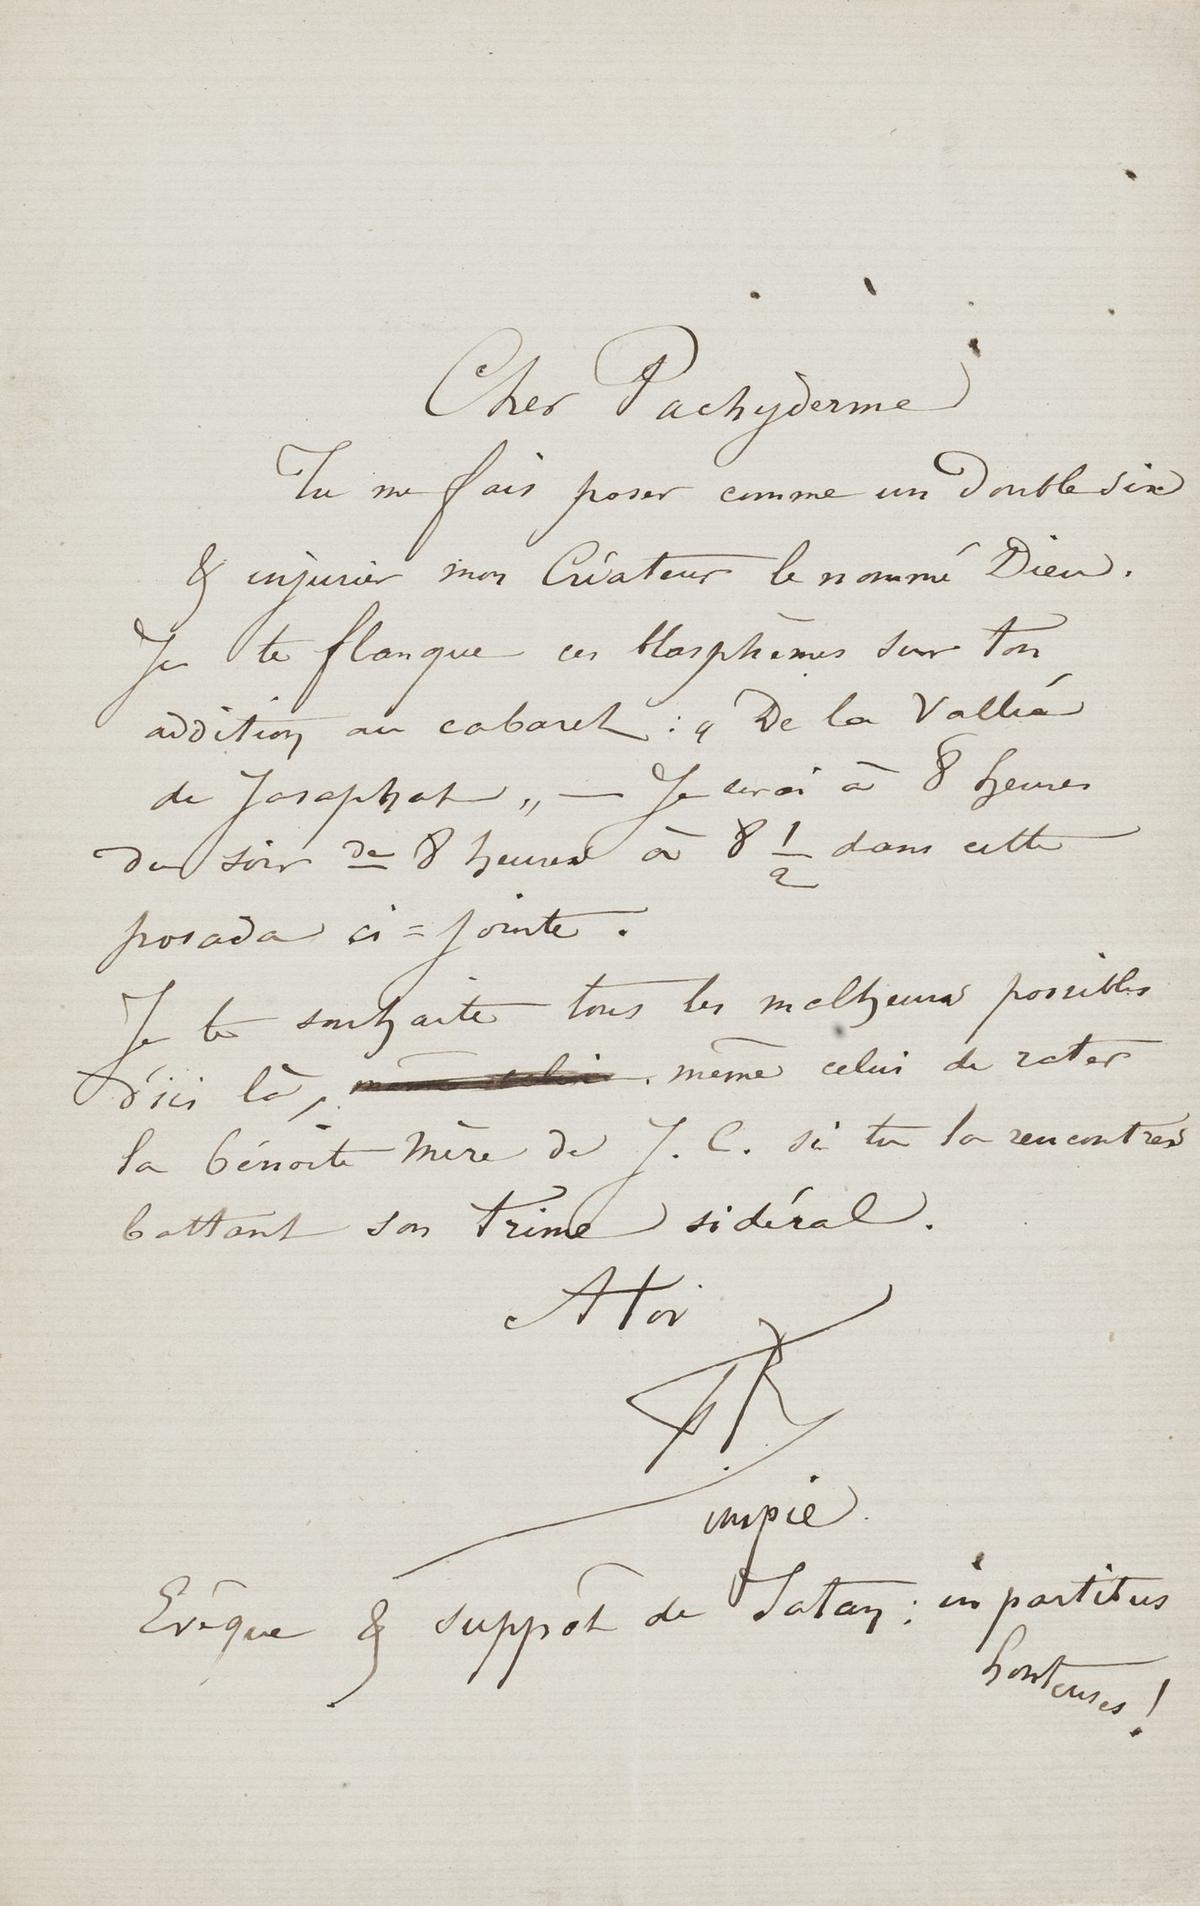 Cher Pachyderme
Tu me fais poser comme un Double six
& injurier mon Créateur le nommé Dieu.
Je te flanque ces blasphèmes sur ton
addition au cabaret : „ De la Vallée
de Josaphat „ — Je serai à 8 heures
du soir de 8 heures à 8 1/2 dans cette
posada ci=jointe.
Je te souhaite tous les malheurs possibles
d'ici là, même celui même celui de rater
la bénoite Mère de J. C. si tu la rencontres
battant son trime sidéral.
A toi
FR
impie
Evêque & suppôt de Satan : in partibus
honteuses !